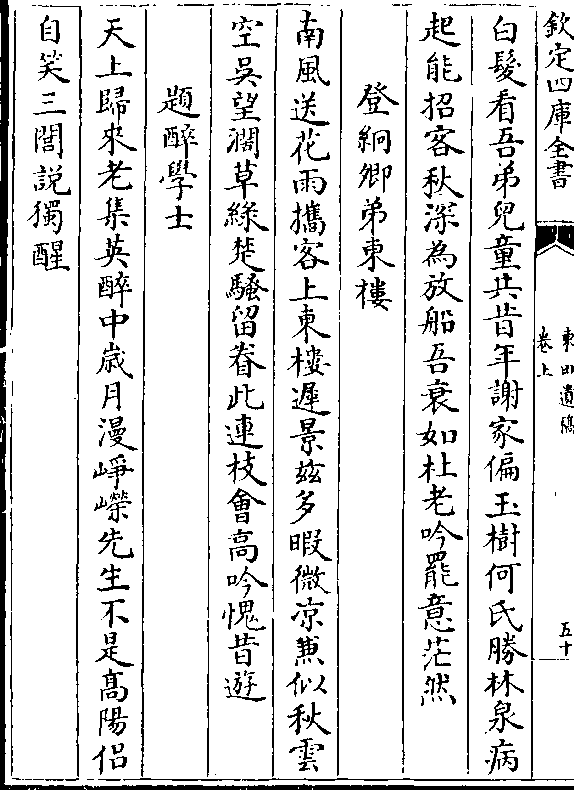 欽定四庫全書
東田遺稿
卷上
五十
白髮看吾弟兒童共昔年謝家偏玉樹何氏勝林泉病
起能招客秋深為放船吾衰如杜老吟罷意茫然
登絅卿弟東樓
南風送花雨攜客上東樓遲景兹多暇微凉兼似秋雲
空吳望濶草綠楚騷留眷此連枝會高吟愧昔遊
題醉學士
天上歸來老集英醉中歲月漫崢嶸先生不是髙陽侣
自笑三閭説獨醒